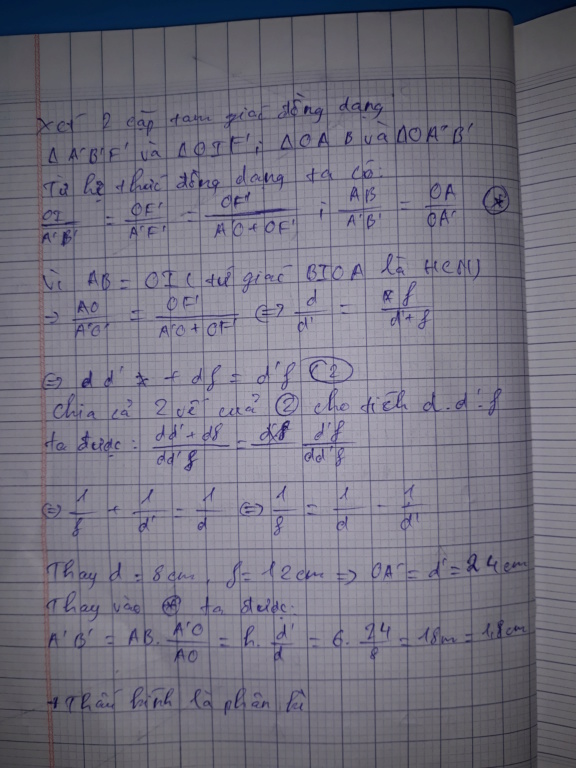 Xét 2 cặp tam giác đồng dạng
Δ A'B'F' và Δ OIF' ; Δ OAB và Δ OA'B'
Từ hệ thức đồng dạng ta có:
OI/A'B' = OF'/A'F' = OF'/(A'O + OF') ; AB/A'B' = OA/OA' (*)
Vì AB = OI (tứ giác BIOA là HCN)
→ AO/A'O' = OF'/(A'O + OF') ⇔ d/d' = f/(d' + f)
⇔ dd' + df = d'f (2)
Chia cả 2 vế của (2) cho tích d.d'.f
ta được: (dd' + df)/dd'f = d'f/dd'f
⇔ 1/f + 1/d' = 1/d ⇔ 1/f = 1/d - 1/d'
Thay d = 8cm, f = 12cm ⇒ OA' = d' = 24cm
Thay vào (*) ta được:
A'B' = AB . A'O/AO = h. d'/d = 6. 24/8 = 18m = 1,8cm
Thấu kính là phân kì